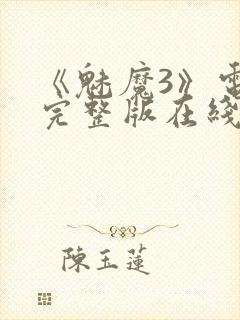 《魅魔3》電
完整版在綫
陳玉蓮